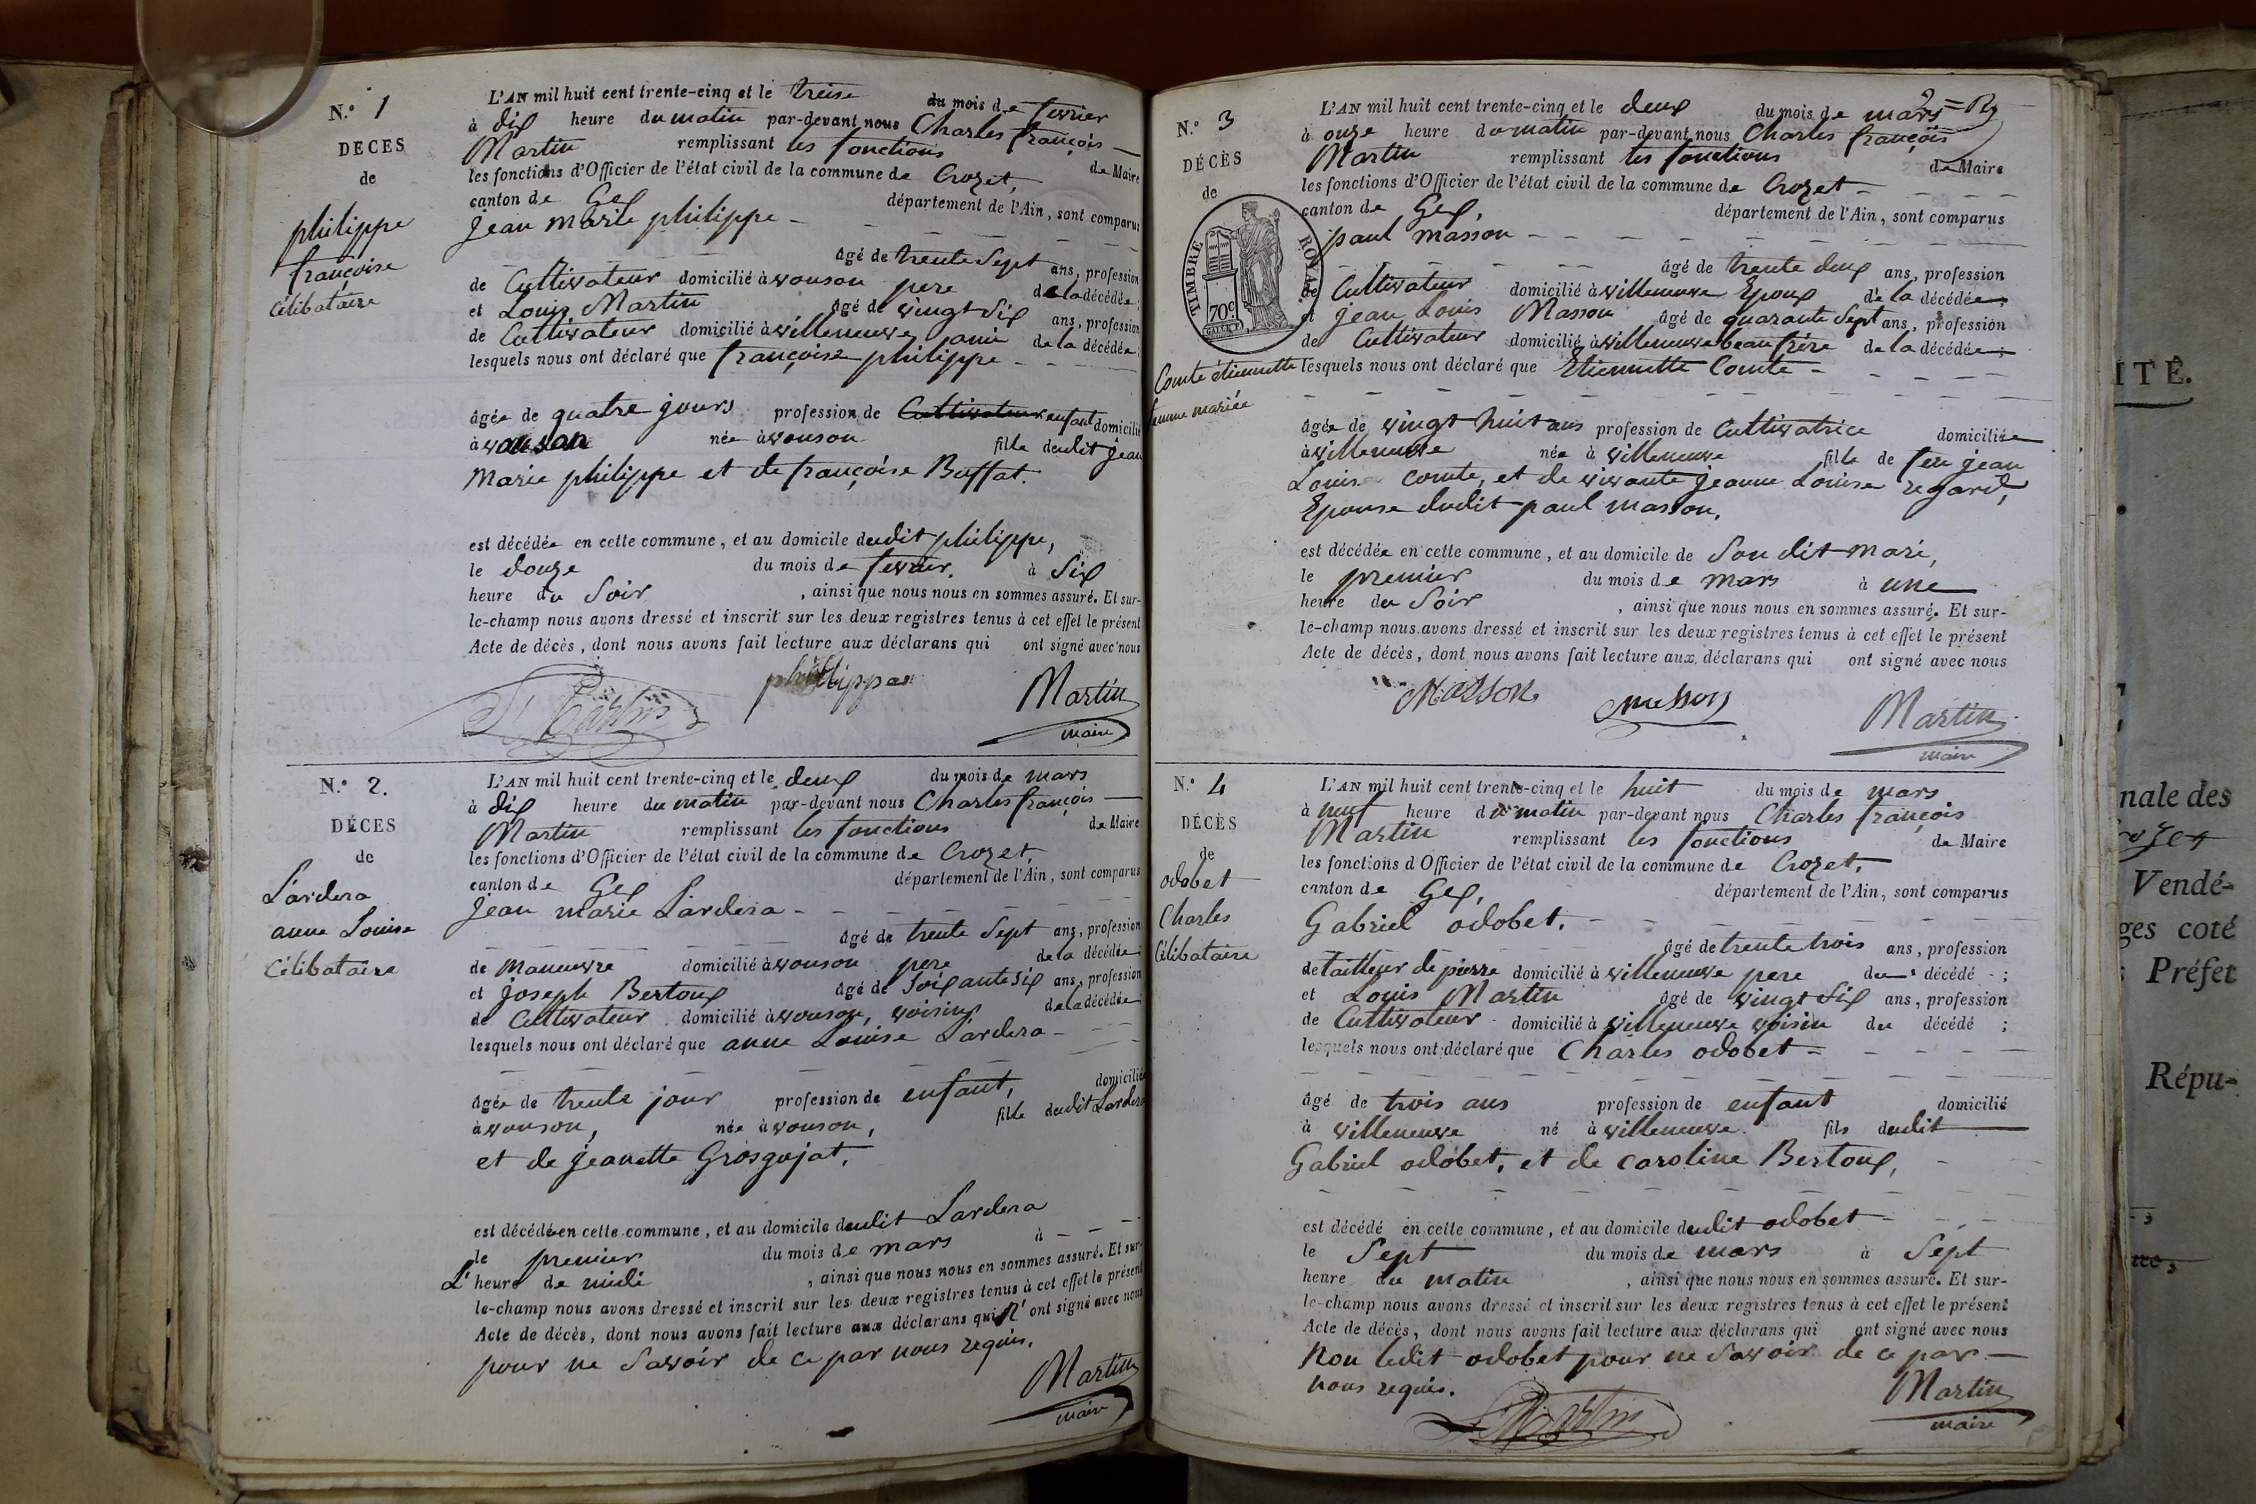 N.° 1
DECES
de
philippe
françoise
Célibataire
L'AN mil huit cent trente-cinq et le treise du mois de fevrier
à dix heure du matin par-devant nous Charles françois
Martin remplissant les fonctions de Maire
les fonctions d'Officier de l'état civil de la commune de Crozet,
canton de Gex département de l'Ain, sont comparus
jean marie philippe
âgé de trente Sept ans, profession
de Cultivateur domicilié à vouson pere de la décédée;
et Louis Martin âgé de vingt Six ans, profession
de Cultivateur domicilié à villeneuve, ami de la décédée;
lesquels nous ont déclaré que françoise philippe
âgée de quatre jours profession de Cultivateur enfant domicilié
à vouson née à vouson fille dudit jean
Marie philippe et de françoise Buffat.
est décédée en cette commune, et au domicile dudit philippe,
le douze du mois de fevrier, à Six
heure du Soir, ainsi que nous nous en sommes assuré. Et sur-
le-champ nous avons dressé et inscrit sur les deux registres tenus à cet effet le présent
Acte de décès, dont nous avons fait lecture aux déclarans qui ont signé avec nous
philippe Martin
maire
N.° 2.
DÉCES
de
Lardera
anne Louise
Célibataire
L'AN mil huit cent trente-cinq et le deux du mois de mars
à dix heure du matin par-devant nous Charles françois
Martin remplissant les fonctions de Maire
les fonctions d'Officier de l'état civil de la commune de Crozet,
canton de Gex département de l'Ain, sont comparus
jean marie Lardera
âgé de trente Sept ans, profession
de maneuvre domicilié à vouson pere de la décédée;
et joseph Bertoux âgé de Soixante Six ans, profession
de Cultivateur domicilié à vouson, voisin de la décédée;
lesquels nous ont déclaré que anne Louise Lardera
âgée de trente jour profession de enfant, domicilié
à vouson, née à vouson, fille dudit Lardera
et de jeanette Grosgojat,
est décédée en cette commune, et au domicile dudit Lardera
le premier du mois de mars à
L'heure de midi, ainsi que nous nous en sommes assuré. Et sur-
le-champ nous avons dressé et inscrit sur les deux registres tenus à cet effet le présent
Acte de décès, dont nous avons fait lecture aux déclarans qui N'ont signé avec nous
pour ne Savoir de ce par nous requis.
Martin
maire
N.° 3
DÉCÈS
de
TIMBRE ROYAL
70c.
Comte étiennette
femme mariée
L'AN mil huit cent trente-cinq et le deux du mois de mars
à onze heure du matin par-devant nous Charles françois
Martin remplissant les fonctions de Maire
les fonctions d'Officier de l'état civil de la commune de Crozet
canton de Gex, département de l'Ain, sont comparus
paul masson
âgé de trente deux ans, profession
de Cultivateur domicilié à villeneuve Epoux de la décédée;
et jean Louis Masson âgé de quarante Sept ans, profession
de Cultivateur domicilié à villeneuve beau frère de la décédée;
lesquels nous ont déclaré que Etiennette Comte
âgée de vingt huit ans profession de Cultivatrice domiciliée
à villeneuve née à villeneuve fille de feu jean
Louis comte, et de vivante jeanne Louise regard,
Epouse dudit paul masson,
est décédée en cette commune, et au domicile de Son dit mari,
le premier du mois de mars à une
heure du Soir, ainsi que nous nous en sommes assuré. Et sur-
le-champ nous avons dressé et inscrit sur les deux registres tenus à cet effet le présent
Acte de décès, dont nous avons fait lecture aux déclarans qui ont signé avec nous
Masson masson Martin
maire
N.° 4
DÉCÈS
de
odobet
Charles
Célibataire
L'AN mil huit cent trente-cinq et le huit du mois de mars
à neuf heure du matin par-devant nous Charles françois
Martin remplissant les fonctions de Maire
les fonctions d'Officier de l'état civil de la commune de Crozet,
canton de Gex, département de l'Ain, sont comparus
Gabriel odobet,
âgé de trente trois ans, profession
de tailleur de pierre domicilié à villeneuve pere du décédé;
et Louis Martin âgé de vingt Six ans, profession
de Cultivateur domicilié à villeneuve voisin du décédé;
lesquels nous ont déclaré que Charles odobet
âgé de trois ans profession de enfant domicilié
à villeneuve né à villeneuve fils dudit
Gabriel odobet, et de caroline Bertoux,
est décédé en cette commune, et au domicile dudit odobet
le Sept du mois de mars à Sept
heure du matin, ainsi que nous nous en sommes assuré. Et sur-
le-champ nous avons dressé et inscrit sur les deux registres tenus à cet effet le présent
Acte de décès, dont nous avons fait lecture aux déclarans qui ont signé avec nous
Non ledit odobet pour ne Savoir de ce par
nous requis.
Martin
maire
ITÉ.
nale des
Vendé-
ges coté
Préfet
Répu-